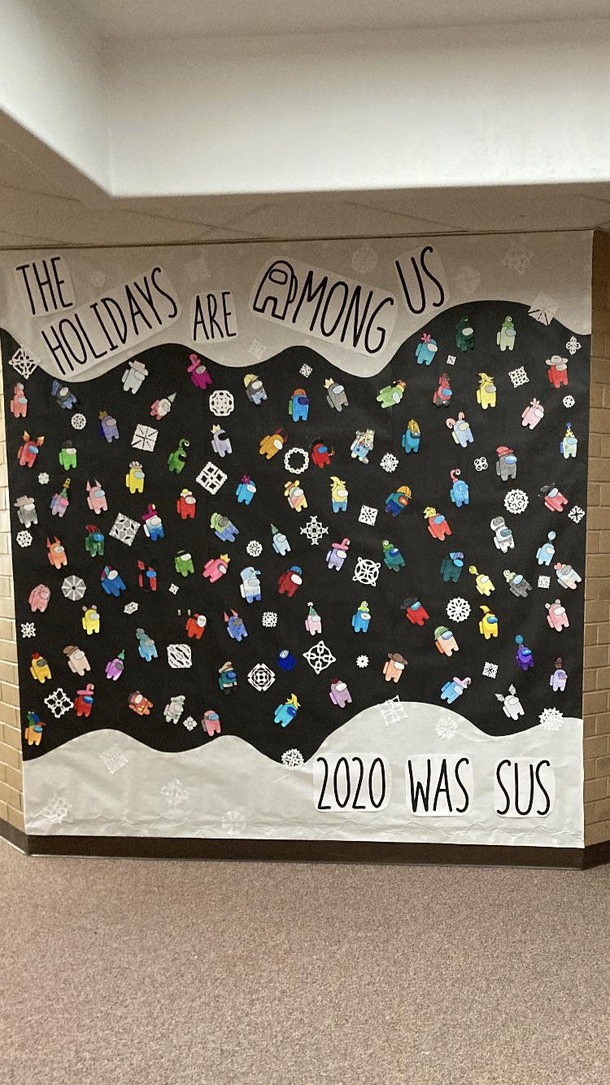 THE HOLIDAYS ARE AMONG US
2020 WAS SUS